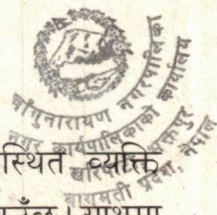 चाँगुनारायण नगरपालिका
नगर कार्यपालिकाको कार्यालय
भक्तपुर
बागमती प्रदेश, नेपाल
स्थित व्यक्ति